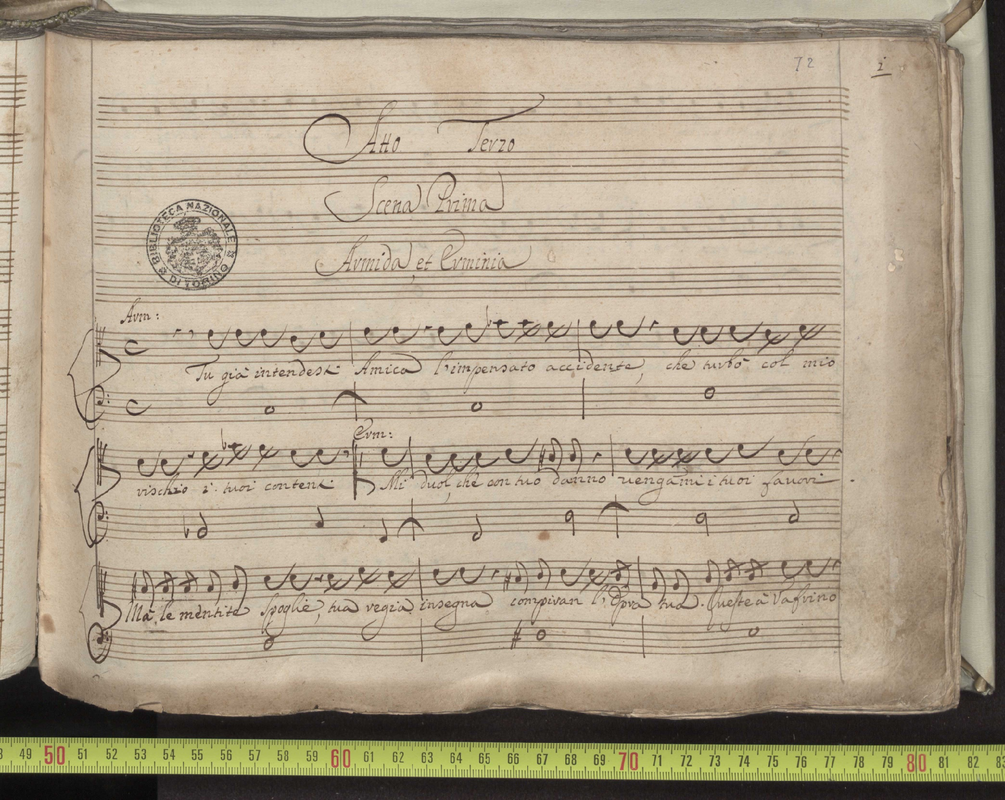 72
1
Atto Terzo
Scena Prima
Armida, et Erminia
BIBLIOTECA NAZIONALE
DI TORINO
Arm:
Tu già intendesti Amica l'impensato accidente, che turbò col mio
rischio i tuoi contenti
Erm:
Mi duol, che con tuo danno vengami i tuoi favori
Mà, le mentite spoglie, tua regia insegna compivan l'opra tua. Queste à Vafrino
49 50 51 52 53 54 55 56 57 58 59 60 61 62 63 64 65 66 67 68 69 70 71 72 73 74 75 76 77 78 79 80 81 82 83